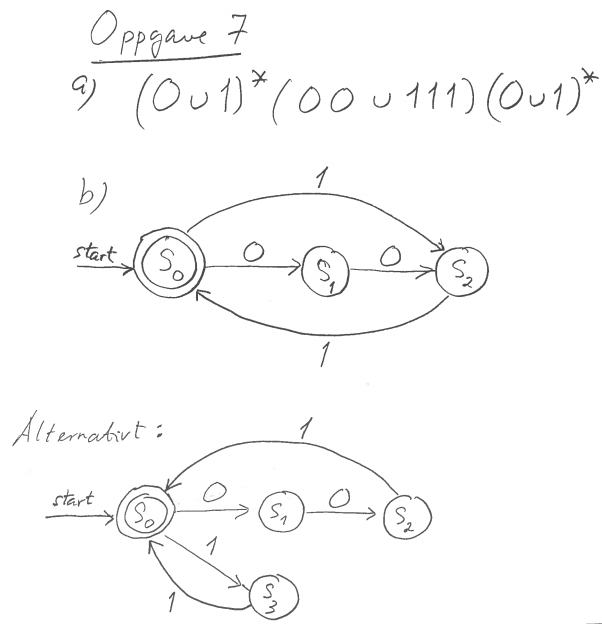 Oppgave 7
a) (0∪1)*(00∪111)(0∪1)*
b)
1
start S₀ 0 S₁ 0 S₂
1
Alternativt:
1
start S₀ 0 S₁ 0 S₂
1
1 S₃